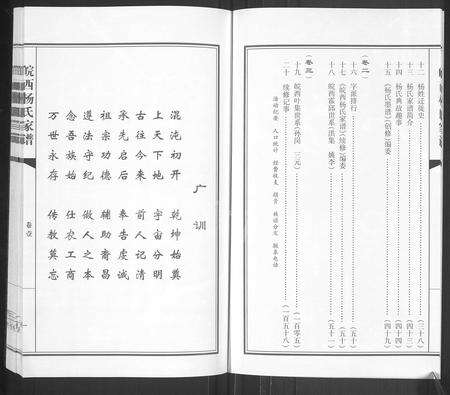 十二 杨姓迁徙史 (三十八)
十三 杨氏家谱简介 (四十三)
十四 杨氏典故趣事 (四十四)
十五 《杨氏墨谱》创修 编委 (四十九)
(卷二)
十六 字派排行 (五十)
十七 《皖西杨氏家谱》续修 编委 (五十)
十八 皖西霍邱世系 (五十一)
(卷三)
十九 皖西叶集世系 (一百零五)
二十 续修记事 (一百五十八)
活动纪要 人口统计 经费收支 捐资 族谱分发 联系电话
广训
混沌初开 乾坤始奠
上天下地 宇宙分明
古往今来 前人记清
承先启后 奉告虔诚
祖宗功德 辅助裔昌
遵法守纪 做人之本
念吾族始 仕农工商
万世永存 传教莫忘
皖西杨氏家谱
卷壹